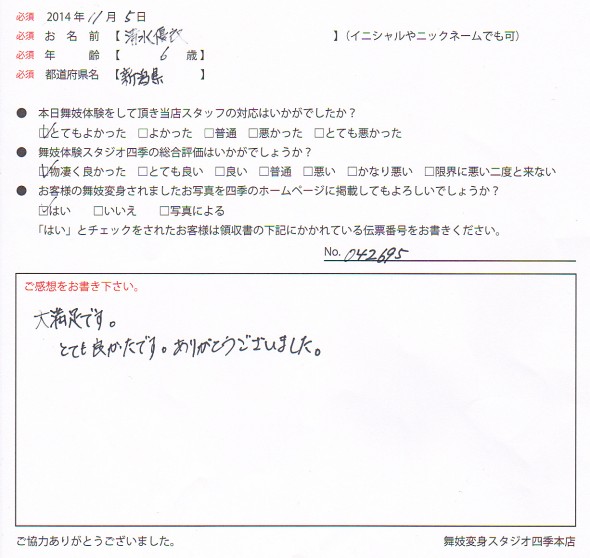 必須 2014年 11月 5日
必須 お 名 前【 清水優衣 】(イニシャルやニックネームでも可)
必須 年 齢【 6 歳】
必須 都道府県名【新潟県 】
● 本日舞妓体験をして頂き当店スタッフの対応はいかがでしたか?
☑とてもよかった □よかった □普通 □悪かった □とても悪かった
● 舞妓体験スタジオ四季の総合評価はいかがでしょうか?
☑物凄く良かった □とても良い □良い □普通 □悪い □かなり悪い □限界に悪い二度と来ない
● お客様の舞妓変身されましたお写真を四季のホームページに掲載してもよろしいでしょうか?
☑はい □いいえ □写真による
「はい」とチェックをされたお客様は領収書の下記にかかれている伝票番号をお書きください。
No. 042695
ご感想をお書き下さい。
大満足です。
とても良かたです。ありがとうございました。
ご協力ありがとうございました。 舞妓変身スタジオ四季本店